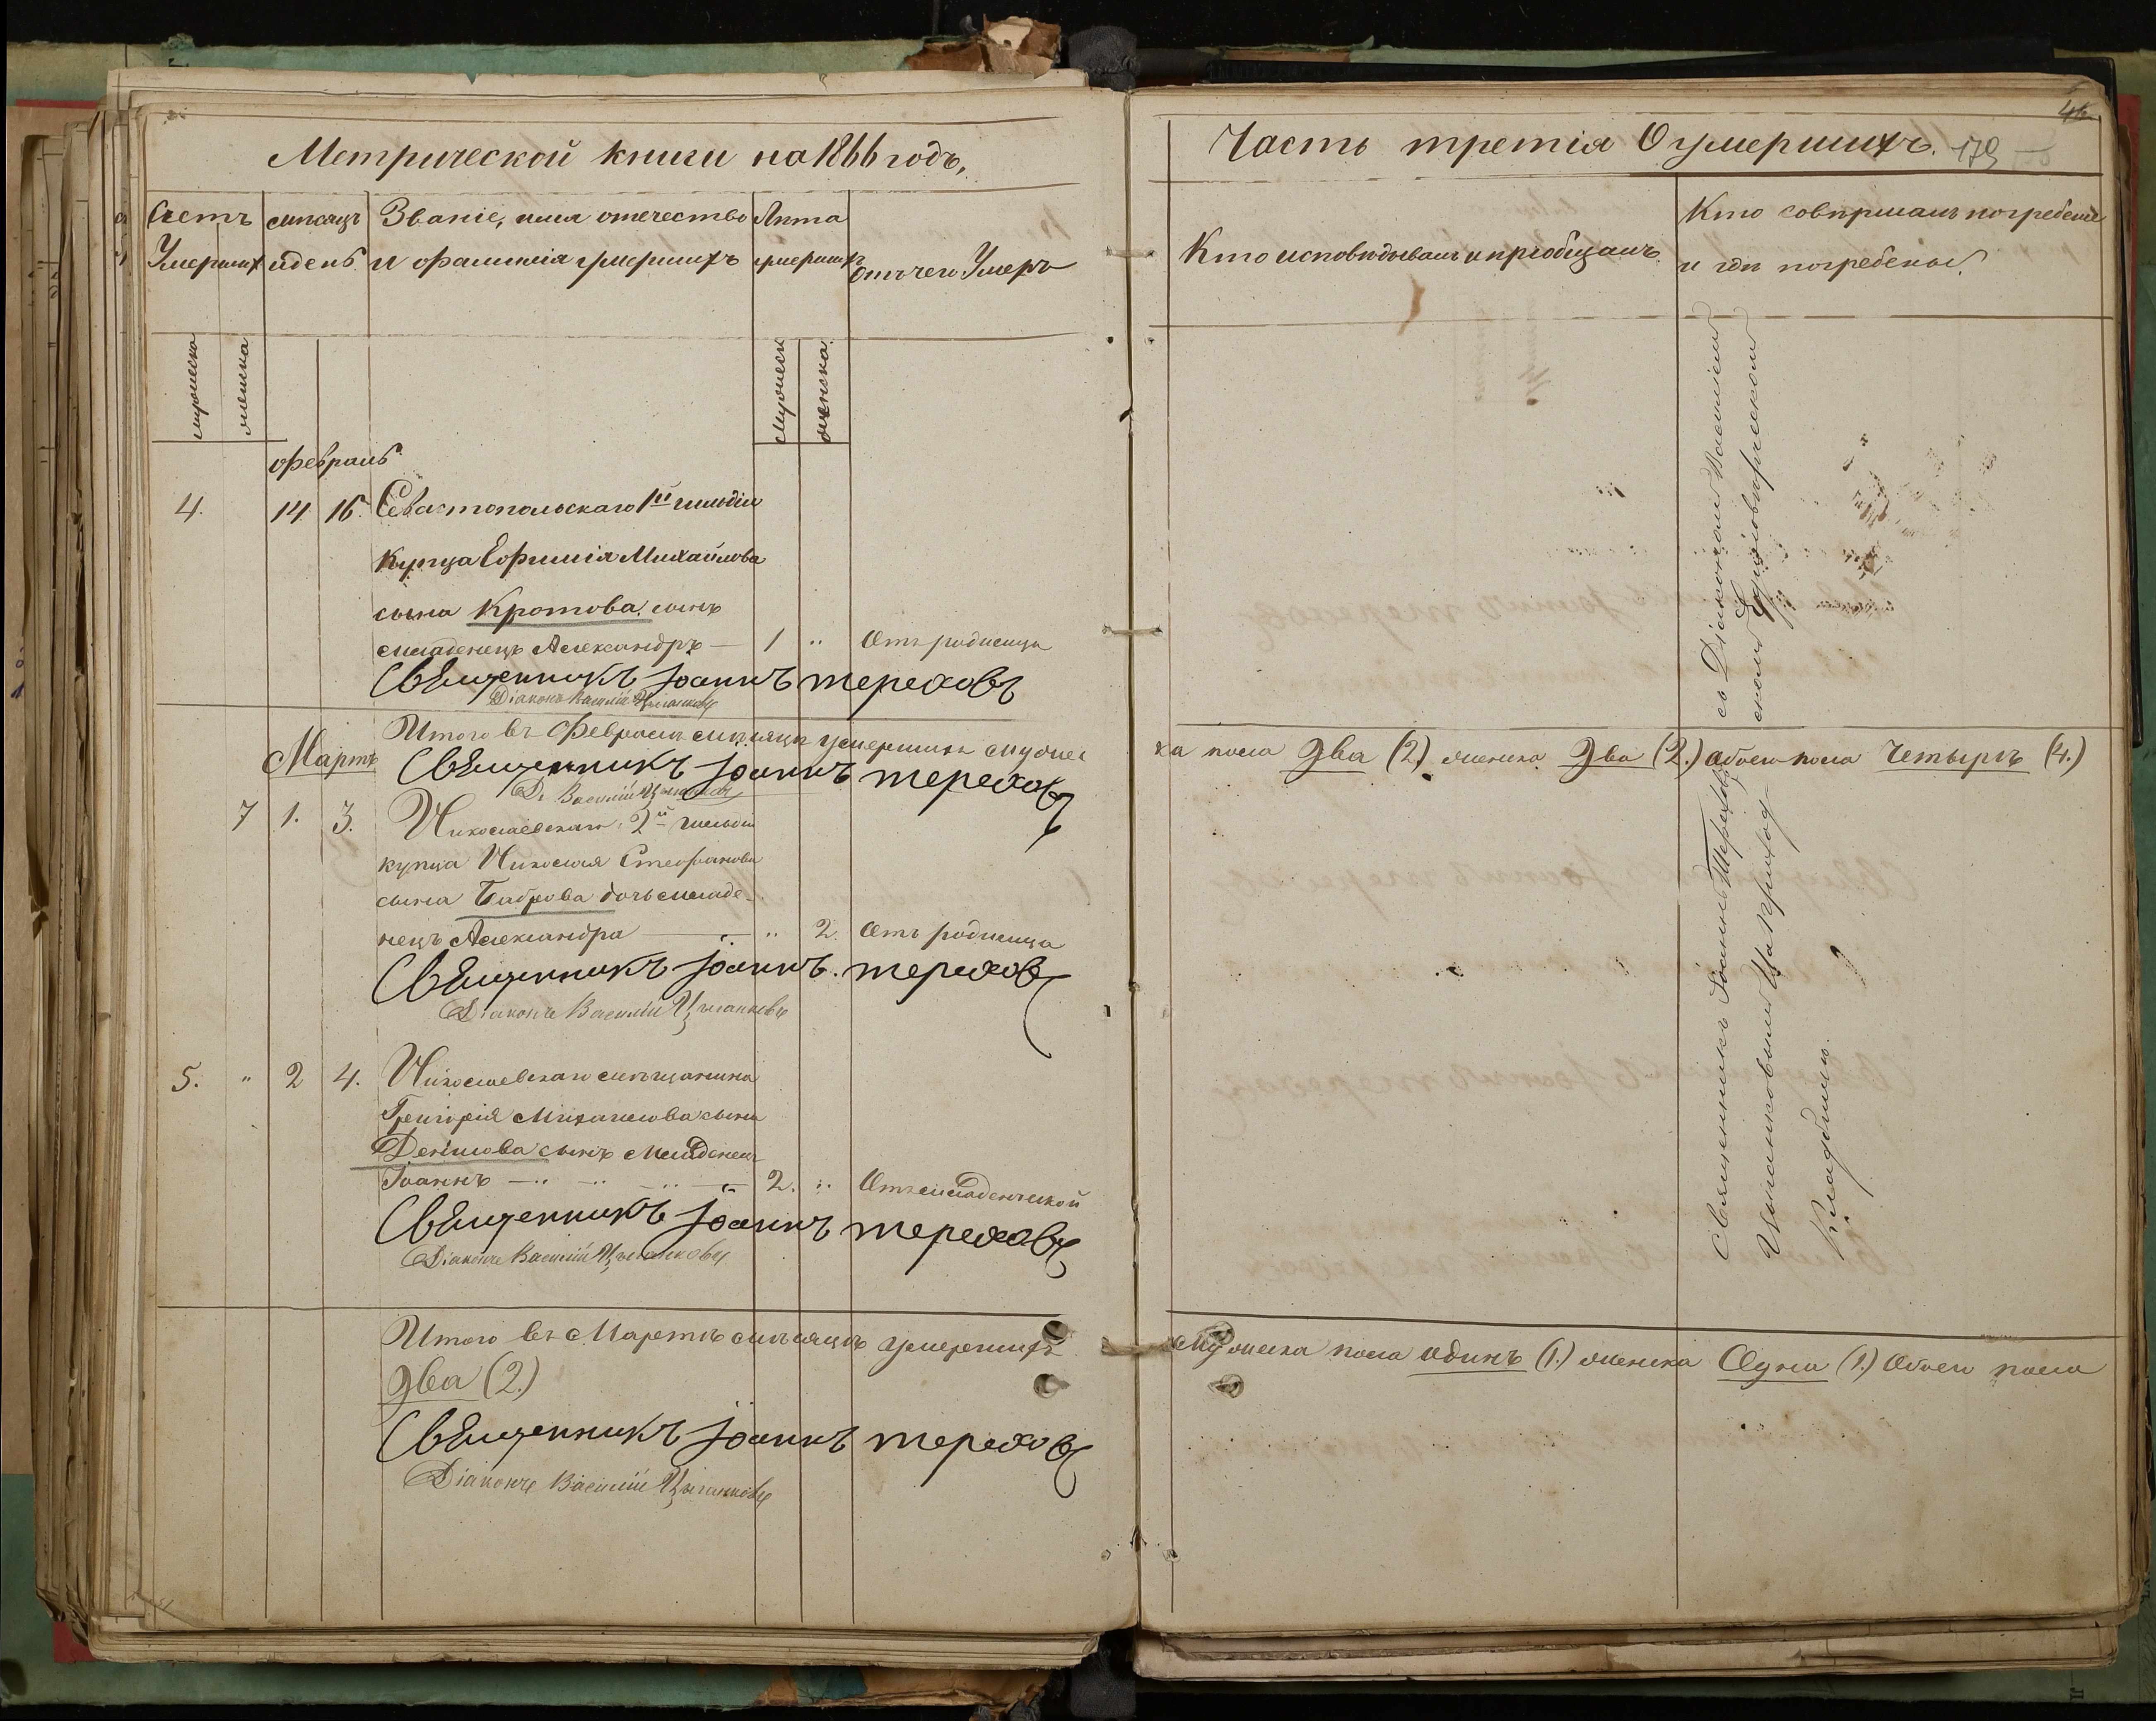 Метрической книги на 1866 годъ,
Счетъ Умершихъ
мѣсяцъ и день
Званіе, имя отечество и фамилія умершихъ
Лѣта умершихъ
Отъ чего Умеръ
мужеска
женска
мужеск
женска
Февраль
4. 14 16. Севастопольскаго 1й гильдіи
купца Ефимія Михайлова
сына Кротова сынъ
младенецъ Александръ — 1 " Отъ родимца
Священникъ Іоаннъ Тереховъ
Діаконъ Василій Цыганковъ
Итого въ Февралѣ мѣсяцѣ умершихъ мужес
Мартъ
Священникъ Іоаннъ Тереховъ
Д. Василій Цыганковъ
7 1. 3. Николаевскаго 2й гильдіи
купца Николая Стефанова
сына Боброва дочь младе-
нецъ Александра — " 2. Отъ родимца
Священникъ Іоаннъ Тереховъ
Діаконъ Василій Цыганковъ
5. " 2 4. Николаевскаго мѣщанина
Григорія Михаилова сына
Денисова сынъ младенецъ
Іоаннъ — 2. " Отъ младенческой
Священникъ Іоаннъ Тереховъ
Діаконъ Василій Цыганковъ
Итого въ Мартѣ мѣсяцѣ умершихъ
два (2)
Священникъ Іоаннъ Тереховъ
Діаконъ Василій Цыганковъ
46
Часть третія О умершихъ. 179
Кто исповѣдывалъ и пріобщалъ
Кто совершалъ погребеніе
и гдѣ погребены.
ка пола Два (2) женска Два (2.) обоего пола Четыре (4.)
Священникъ Іоаннъ Тереховъ съ Діакономъ Василіемъ
Цыганковымъ На приход-
скомъ
Кладбищѣ.
мужеска пола одинъ (1.) женска Одна (1.) Обоего пола